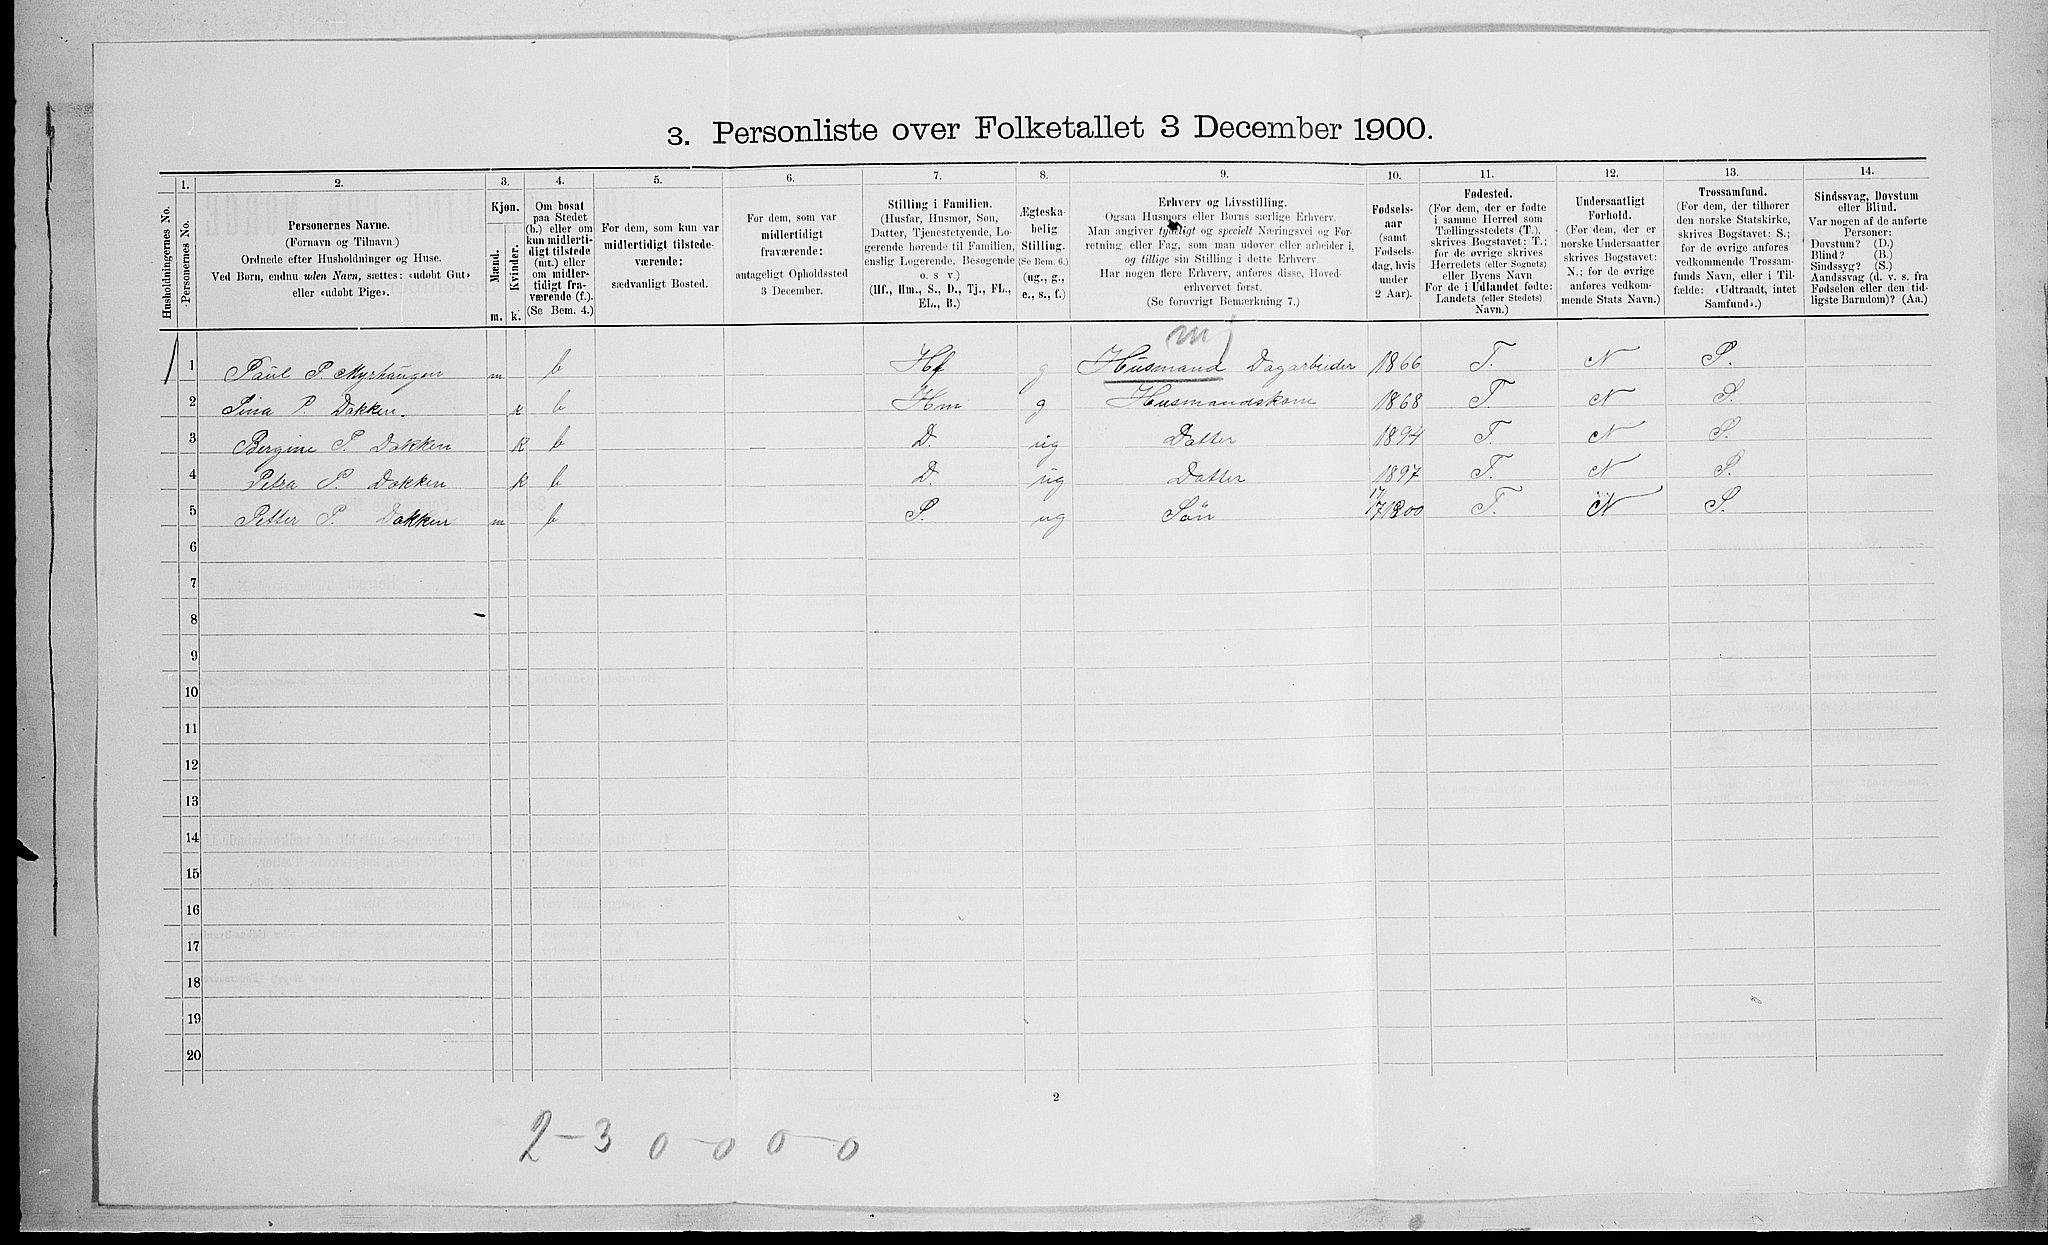 3. Personliste over Folketallet 3 December 1900.
1. 2. 3. 4. 5. 6. 7. 8. 9. 10. 11. 12. 13. 14.
Husholdningernes No.
Personernes No.
Personernes Navne.
(Fornavn og Tilnavn.)
Ordnede efter Husholdninger og Huse.
Ved Børn, endnu uden Navn, sættes: «udøbt Gut»
eller «udøbt Pige».
Kjøn.
Mænd.
Kvinder.
m. k.
Om bosat
paa Stedet
(b.) eller om
kun midlerti-
digt tilstede
(mt.) eller
om midler-
tidigt fra-
værende (f.).
(Se Bem. 4.)
For dem, som kun var
midlertidigt tilstede-
værende:
sædvanligt Bosted.
For dem, som var
midlertidigt
fraværende:
antageligt Opholdssted
3 December.
Stilling i Familien.
(Husfar, Husmor, Søn,
Datter, Tjenestetyende, Lo-
gerende hørende til Familien,
enslig Logerende, Besøgende
o. s v.)
(Hf., Hm., S., D., Tj., FL.,
EL., B.)
Ægteska-
belig
Stilling.
(Se Bem. 6.)
(ug., g.,
e., s., f.)
Erhverv og Livsstilling.
Ogsaa Husmors eller Børns særlige Erhverv.
Man angiver tydeligt og specielt Næringsvei og For-
retning eller Fag, som man udøver eller arbeider i,
og tillige sin Stilling i dette Erhverv.
Har nogen flere Erhverv, anføres disse, Hoved-
erhvervet først.
(Se forøvrigt Bemærkning 7.)
Fødsels-
aar
(samt
Fødsels-
dag, hvis
under
2 Aar).
Fødested.
(For dem, der er fødte
i samme Herred som
Tællingsstedets (T.),
skrives Bogstavet: T.;
for de øvrige skrives
Herredets (eller Sognets)
eller Byens Navn
For de i Udlandet fødte:
Landets (eller Stedets)
Navn.)
Undersaatligt
Forhold.
(For dem, der er
norske Undersaatter
skrives Bogstavet:
N.; for de øvrige
anføres vedkom-
mende Stats Navn.)
Trossamfund.
(For dem, der tilhører
den norske Statskirke,
skrives Bogstavet: S.;
for de øvrige anføres
vedkommende Trossam-
funds Navn, eller i Til-
fælde: «Udtraadt, intet
Samfund».)
Sindssvag, Døvstum
eller Blind.
Var nogen af de anførte
Personer:
Døvstum? (D.)
Blind? (B.)
Sindssyg? (S.)
Aandssvag (d. v. s. fra
Fødselen eller den tid-
ligste Barndom)? (Aa.)
1 1 Paul P. Myrhaugen m b Hf g Husmand Dagarbeider 1866 T. N S.
2 Pina P. Dokken. k b Hm g Husmandskone 1868 T. N S.
3 Bergine P. Dokken k b D. ug Datter 1894 T. N S.
4 Petra P. Dokken k b D. ug Datter 1897 T. N S.
5 Petter P. Dokken m b S. ug Søn 17/7 1900 T. N S.
6
7
8
9
10
11
12
13
14
15
16
17
18
19
20
2
2-3 0-0 0-0